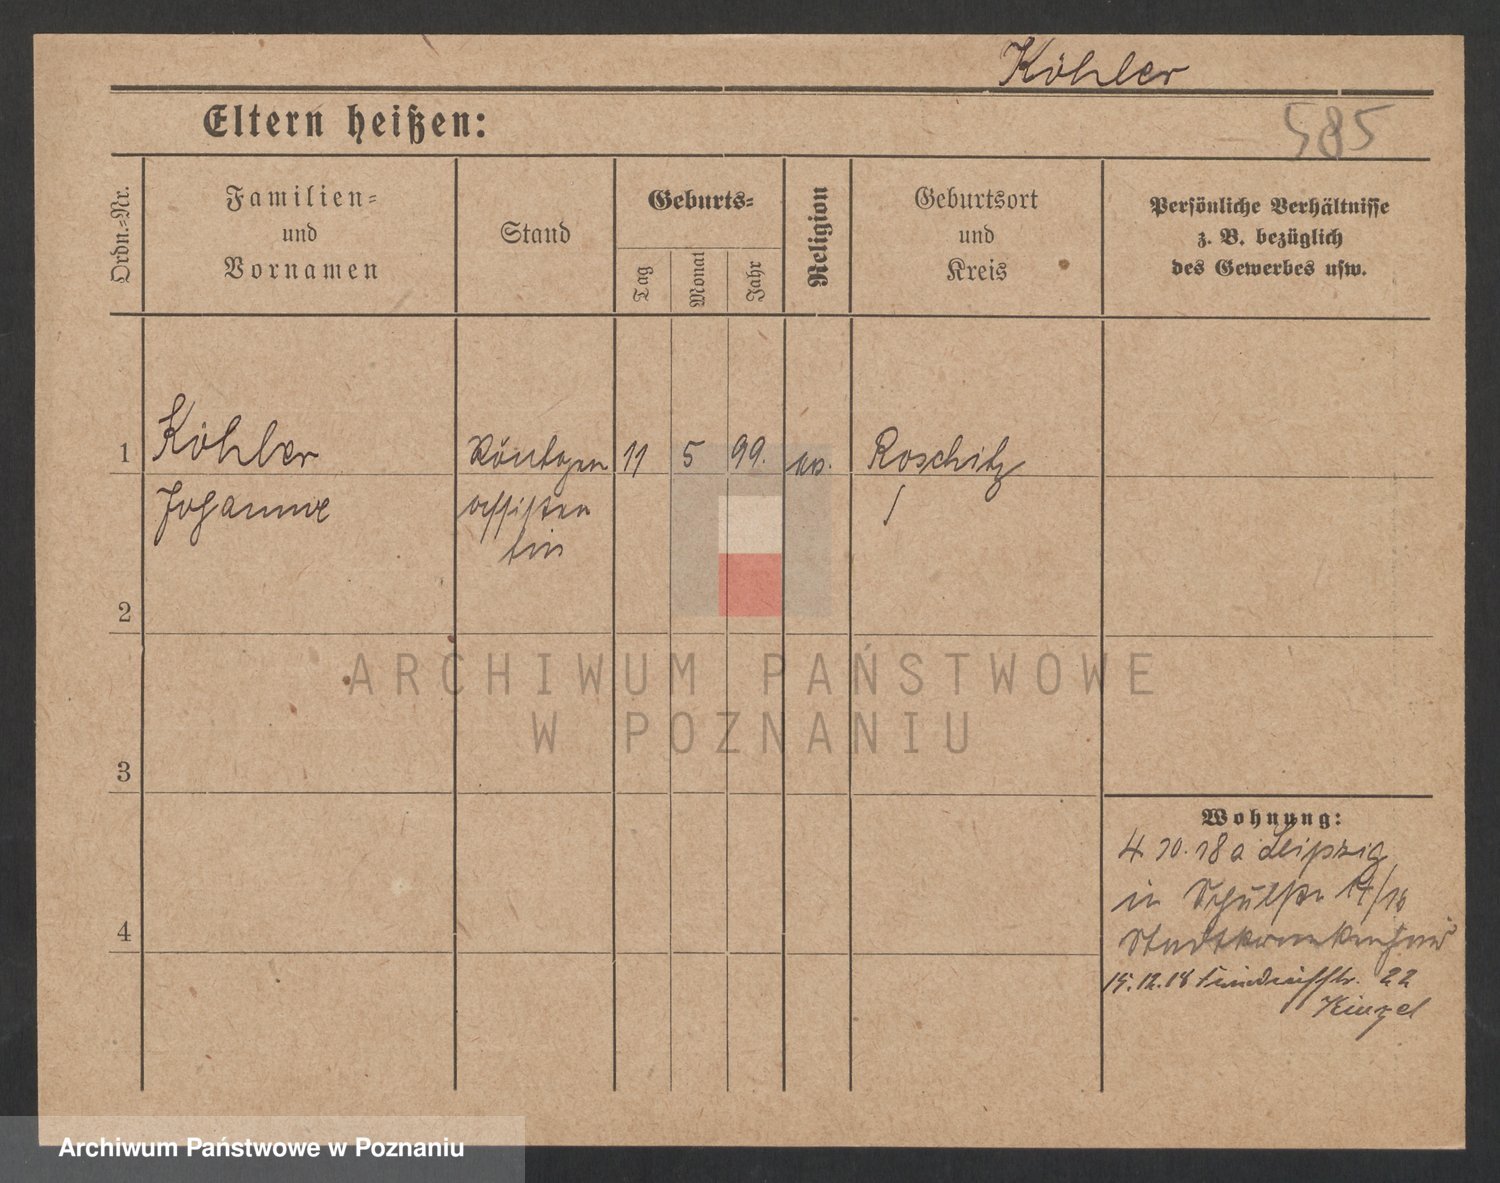 Köhler
Eltern heißen:
585
Ordn.-Nr.
Familien-
und
Vornamen
Stand
Geburts-
Tag
Monat
Jahr
Religion
Geburtsort
und
Kreis
Persönliche Verhältnisse
z. B. bezüglich
des Gewerbes usw.
1 Köhler Röntgen 11 5 99. ev. Roschitz
Johanne assisten
tin
2
ARCHIWUM PAŃSTWOWE
W POZNANIU
3
Wohnung:
4. 10. 18 a Leipzig
in Schulstr 14/16
Stadtkrankenhaus
4
15.12.18 22
Kinzel
Archiwum Państwowe w Poznaniu